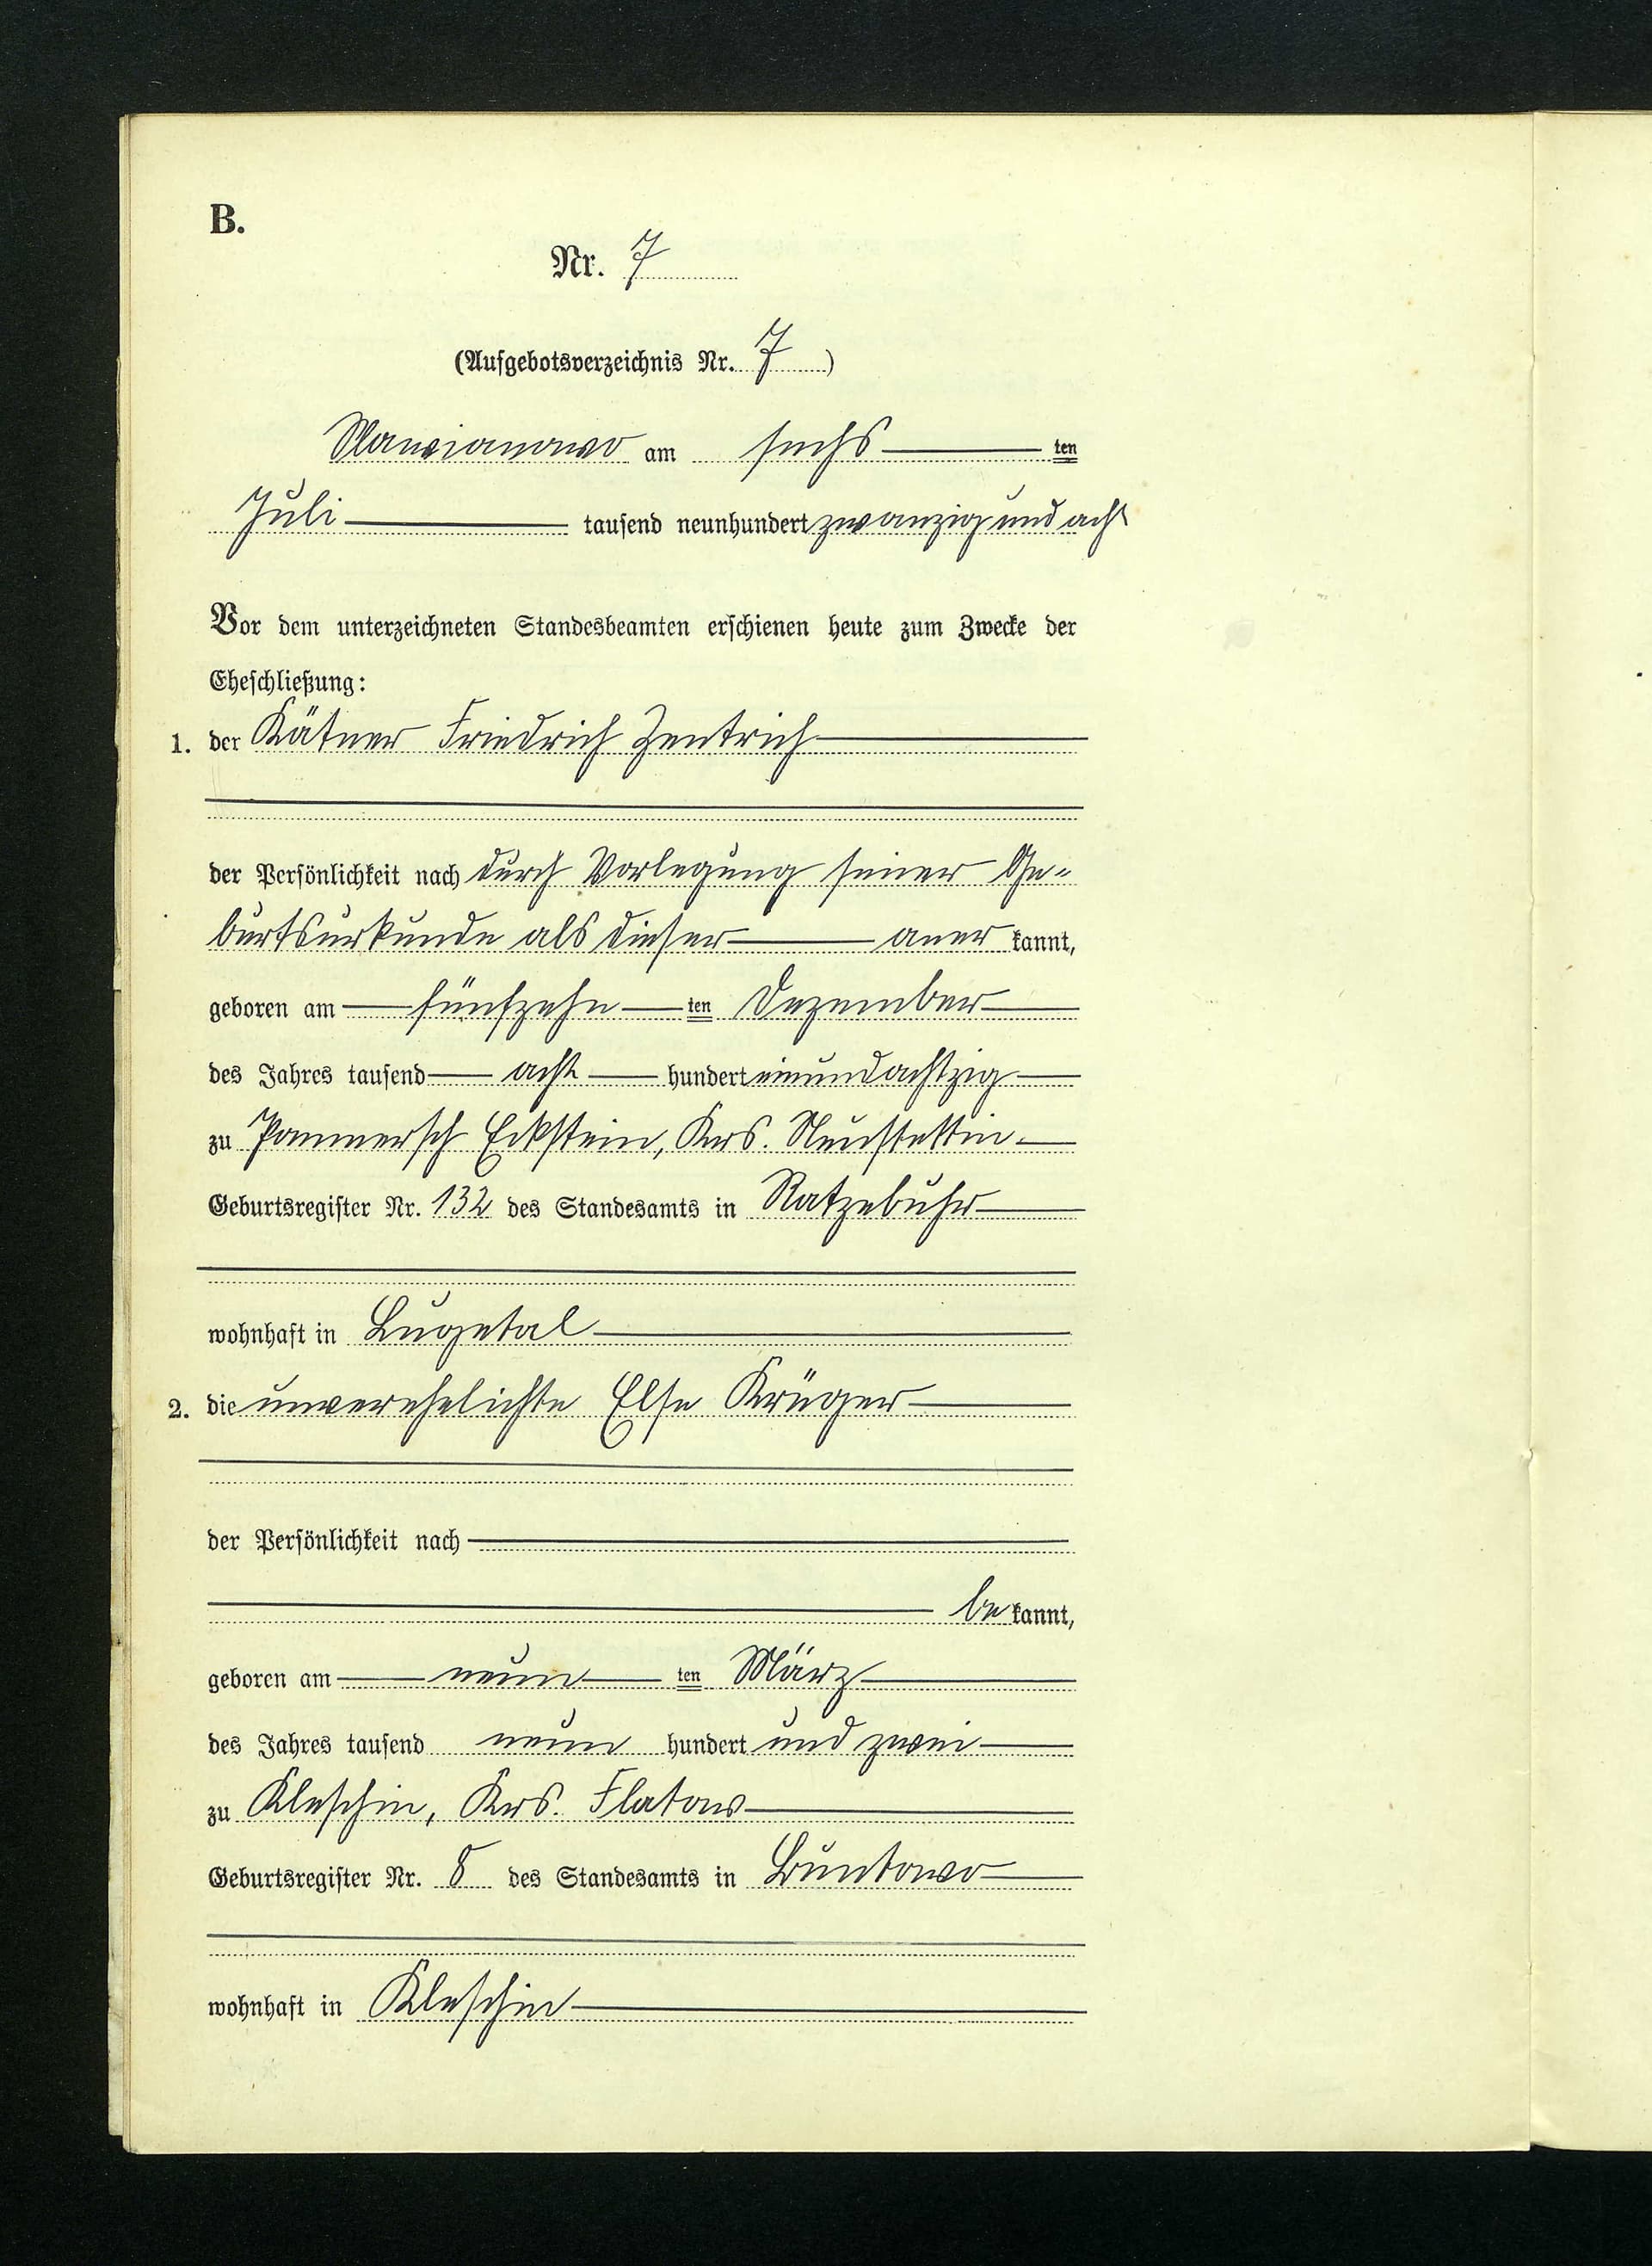 B.
Nr. 7
(Aufgebotsverzeichnis Nr. 7)
Slawianowo am sechs ten
Juli tausend neunhundert zwanzig und acht
Vor dem unterzeichneten Standesbeamten erschienen heute zum Zwecke der
Eheschließung:
1. der Kätner Friedrich Zentrich
der Persönlichkeit nach durch Vorlegung seiner Ge-
burtsurkunde als dieser aner kannt,
geboren am fünfzehn ten Dezember
des Jahres tausend acht hundert einundachtzig
zu Pommersch Eckstein, Krs. Neustettin
Geburtsregister Nr. 132 des Standesamts in Ratzebuhr
wohnhaft in Lugetal
2. die unverehelichte Else Krüger
der Persönlichkeit nach
be kannt,
geboren am neun ten März
des Jahres tausend neun hundert und zwei
zu Kleschin, Krs. Flatow
Geburtsregister Nr. 8 des Standesamts in Buntowo
wohnhaft in Kleschin